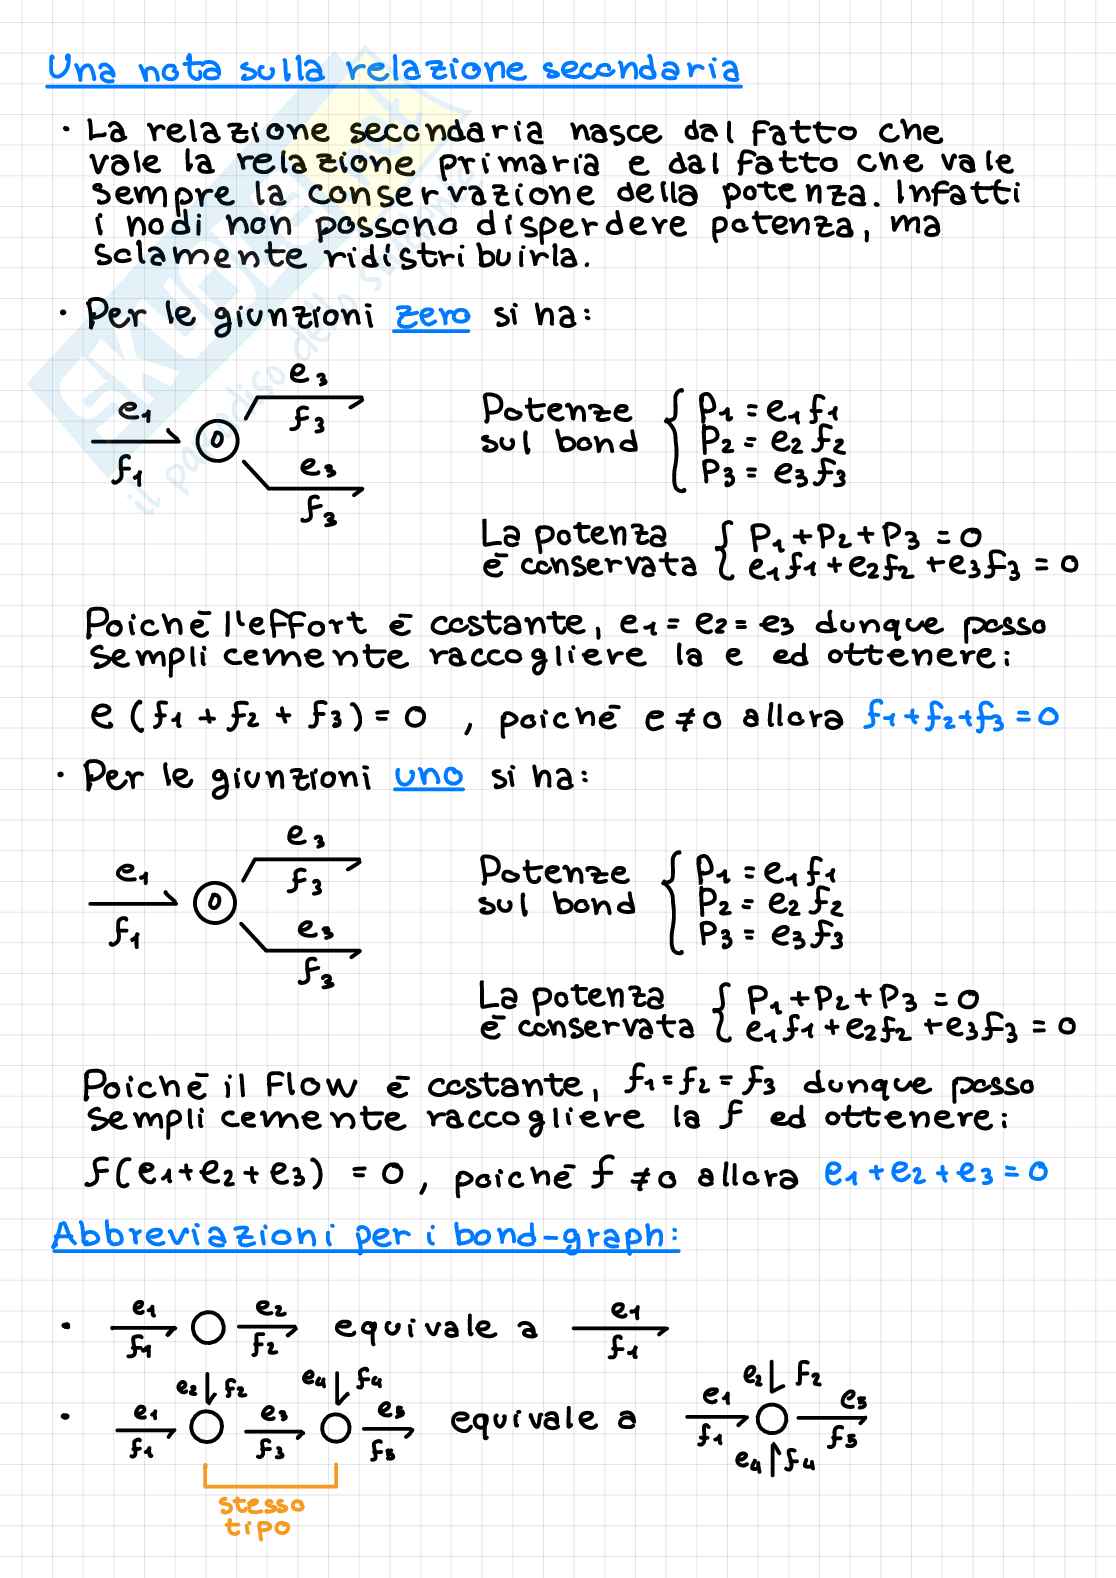 Una nota sulla relazione secondaria
· La relazione secondaria nasce dal fatto che
vale la relazione primaria e dal fatto che vale
sempre la conservazione della potenza. Infatti
i nodi non possono disperdere potenza, ma
solamente ridistribuirla.
· Per le giunzioni zero si ha:
e3
f3
e1
f1
0
e3
f3
Potenze
sul bond
{ P1 = e1 f1
P2 = e2 f2
P3 = e3 f3
La potenza { P1 + P2 + P3 = 0
è conservata { e1f1 + e2f2 + e3f3 = 0
Poichè l'effort è costante, e1 = e2 = e3 dunque posso
semplicemente raccogliere la e ed ottenere:
e (f1 + f2 + f3) = 0 , poichè e ≠ 0 allora f1+f2+f3 = 0
· Per le giunzioni uno si ha:
e3
f3
e1
f1
0
e3
f3
Potenze
sul bond
{ P1 = e1 f1
P2 = e2 f2
P3 = e3 f3
La potenza { P1 + P2 + P3 = 0
è conservata { e1f1 + e2f2 + e3f3 = 0
Poichè il Flow è costante, f1 = f2 = f3 dunque posso
semplicemente raccogliere la f ed ottenere:
f(e1+e2+e3) = 0 , poichè f ≠ 0 allora e1 + e2 + e3 = 0
Abbreviazioni per i bond-graph:
· e1 f1 e2 f2 equivale a e1 f1
· e1 f1 e2 f2 e3 f3 e4 f4 e5 f5 equivale a e1 f1 e2 f2 e5 f5 e4 f4
stesso
tipo
SKUOLA.net
il paradiso dello studente